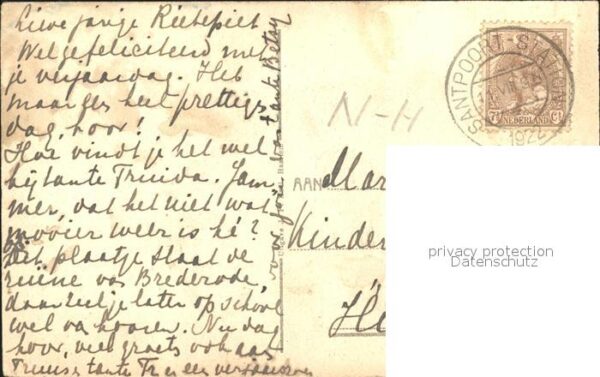 Lieve jarige Rietepiet
Wel gefeliciteerd met
je verjaardag. Heb
maar ges heel prettigs
dag, hoor!
Hoe vindt je het wel
bij tante Truida. Jam
mer, dat het niet wat
mooier weer is hé?
Op het plaatje staat de
ruïne van Brederode,
daar zul je later op school
wel van hooren. Nu dag
hoor, veel groets ook aan
Truus, tante Tr
voor jou van tante Betsy
N-H
SANTPOORT-STATION
1922
7½ NEDERLAND ct
AAN Mar
Kinder
He
privacy protection
Datenschutz